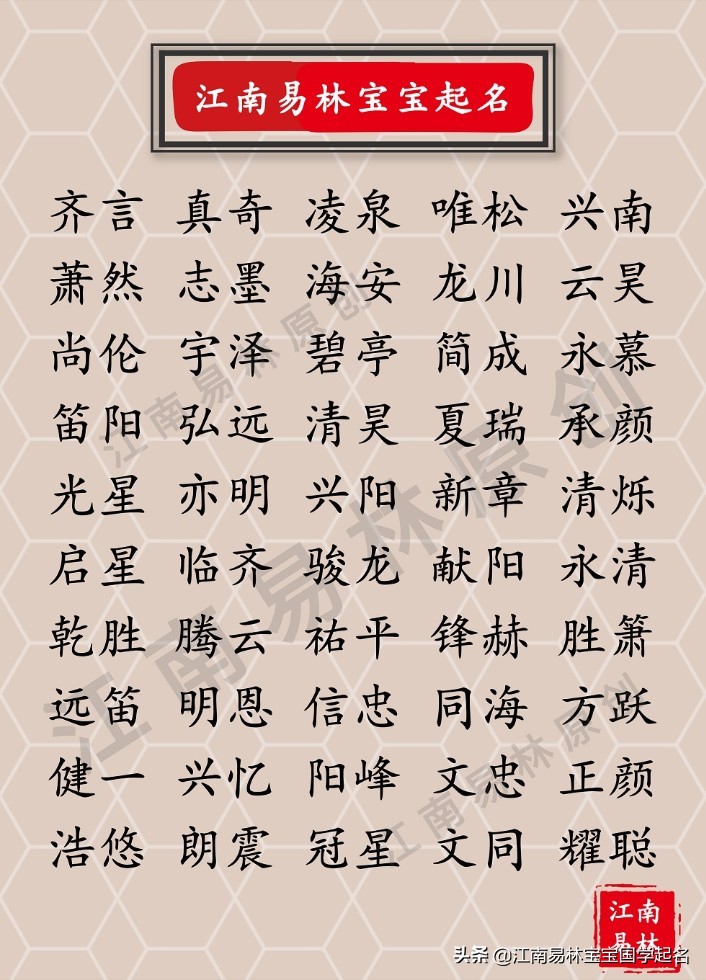 江南易林宝宝起名
齐言 真奇 凌泉 唯松 兴南
萧然 志墨 海安 龙川 云昊
尚伦 宇泽 碧亭 简成 永慕
笛阳 弘远 清昊 夏瑞 承颜
光星 亦明 兴阳 新章 清烁
启星 临齐 骏龙 献阳 永清
乾胜 腾云 祐平 锋赫 胜箫
远笛 明恩 信忠 同海 方跃
健一 兴忆 阳峰 文忠 正颜
浩悠 朗震 冠星 文同 耀聪
江南易林原创
江南易林原创
江南易林原创
江南
易林
头条 @江南易林宝宝国学起名